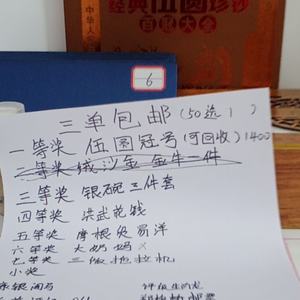 中华人
经典伍圆珍钞
百冠大全
6
三单包邮(50选1)
一等奖 伍圆冠号(可回收)1400
二等奖 绒沙金金牛一件
三等奖 银碗三件套
四等奖 洪武花钱
五等奖 摩根贸易洋
六等奖 大奶妈 ×
七等奖 三版拖拉机
小奖